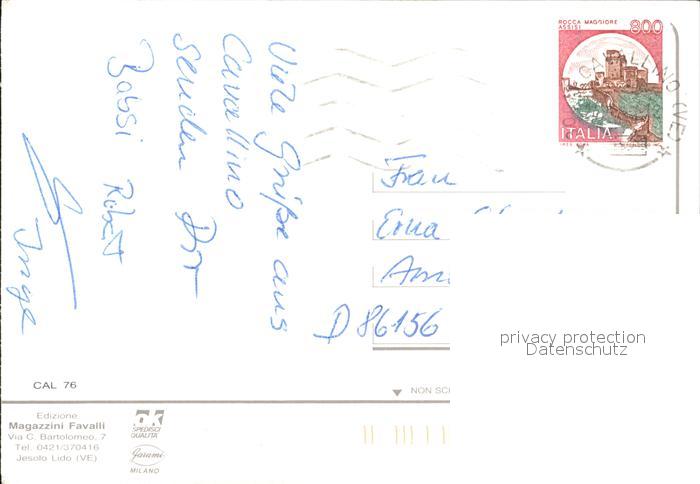 Viele Grüße aus
Cavallino
senden Dir
Babsi Robert
Inge
ROCCA MAGGIORE
ASSISI
800
ITALIA
CAVALLINO (VE)
Frau
Erna
D 86156
privacy protection
Datenschutz
CAL 76
NON SC
Edizione
Magazzini Favalli
Via C. Bartolomeo, 7
Tel. 0421/370416
Jesolo Lido (VE)
OK
SPEDISCI
QUALITÀ
Garami
MILANO